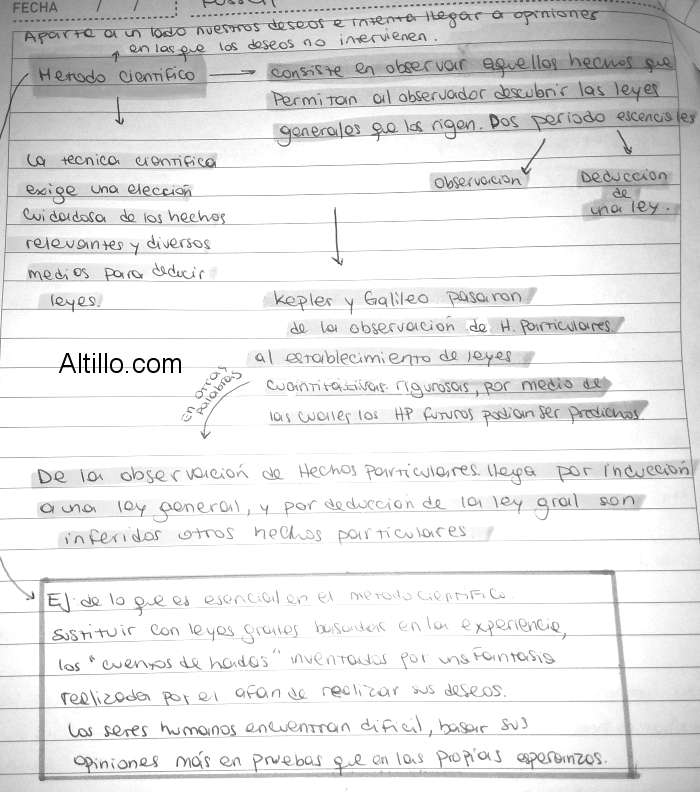 FECHA / /
Aparta a un lado nuestros deseos e intenta llegar a opiniones
en las que los deseos no intervienen.
Metodo Cientifico
consiste en observar aquellos hechos que
Permitan al observador descubrir las leyes
generales que los rigen. Dos periodo escenciales
La tecnica cientifica
exige una elección
Cuidadosa de los hechos
relevantes y diversos
medios para deducir
leyes.
Observacion
Deduccion
de
una ley.
Kepler y Galileo pasaron
de la observacion de H. Particulares
al establecimiento de leyes
Cuantitativas rigurosas, por medio de
las cuales los HP futuros podian ser predichos
Altillo.com
en otras
palabras
De la observación de Hechos Particulares llega por inducción
a una ley general, y por deducción de la ley gral son
inferidos otros hechos particulares
Ej de lo que es esencial en el metodo cientifico.
sustituir con leyes grales basadas en la experiencia,
los "cuentos de hadas" inventados por una fantasia
realizada por el afan de realizar sus deseos.
Los seres humanos encuentran dificil, basar sus
opiniones más en pruebas que en las propias esperanzas.